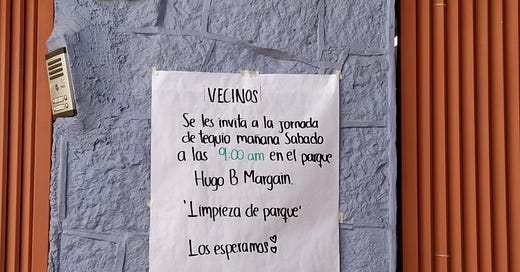 ¡VECINOS!
Se les invita a la jornada
de tequio mañana Sabado
a las 9:00 am en el parque
Hugo B Margain.
'Limpieza de parque'
Los esperamos